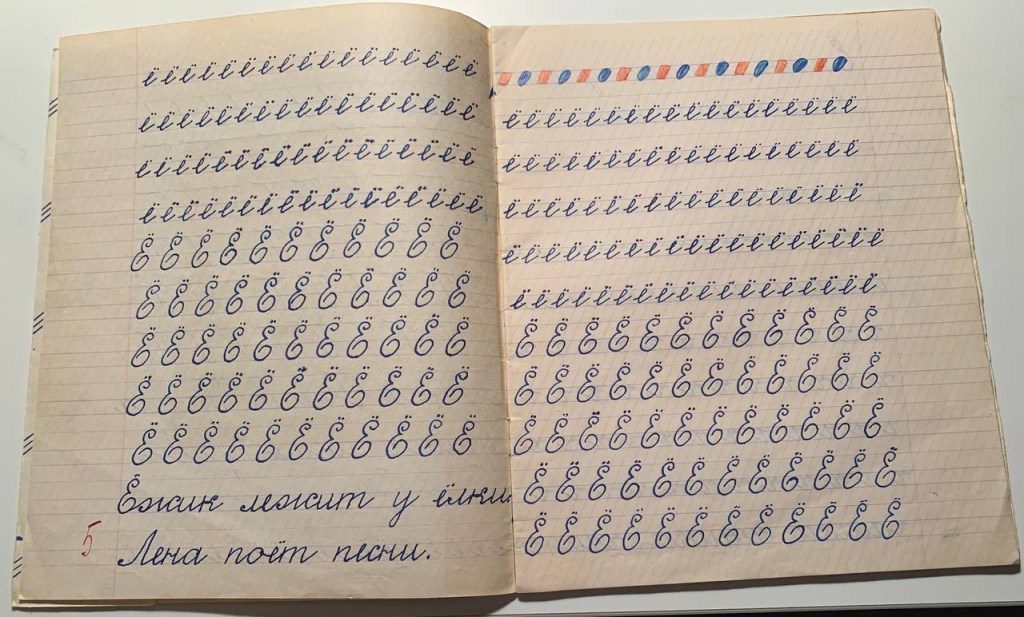 ё ё ё ё ё ё ё ё ё ё ё ё ё ё ё ё ё
ё ё ё ё ё ё ё ё ё ё ё ё ё ё ё ё ё
ё ё ё ё ё ё ё ё ё ё ё ё ё ё ё ё ё
ё ё ё ё ё ё ё ё ё ё ё ё ё ё ё ё ё ё
Ё Ё Ё Ё Ё Ё Ё Ё Ё Ё Ё
Ё Ё Ё Ё Ё Ё Ё Ё Ё Ё Ё
Ё Ё Ё Ё Ё Ё Ё Ё Ё Ё Ё
Ё Ё Ё Ё Ё Ё Ё Ё Ё Ё Ё
Ё Ё Ё Ё Ё Ё Ё Ё Ё Ё Ё
Ёжик лежит у ёлки.
5
Лена поёт песни.
ё ё ё ё ё ё ё ё ё ё ё ё ё ё ё ё ё ё
ё ё ё ё ё ё ё ё ё ё ё ё ё ё ё ё ё ё
ё ё ё ё ё ё ё ё ё ё ё ё ё ё ё ё ё ё
ё ё ё ё ё ё ё ё ё ё ё ё ё ё ё ё ё ё ё
ё ё ё ё ё ё ё ё ё ё ё ё ё ё ё ё ё ё
Ё Ё Ё Ё Ё Ё Ё Ё Ё Ё Ё Ё
Ё Ё Ё Ё Ё Ё Ё Ё Ё Ё Ё Ё
Ё Ё Ё Ё Ё Ё Ё Ё Ё Ё Ё Ё
Ё Ё Ё Ё Ё Ё Ё Ё Ё Ё Ё Ё
Ё Ё Ё Ё Ё Ё Ё Ё Ё Ё Ё Ё